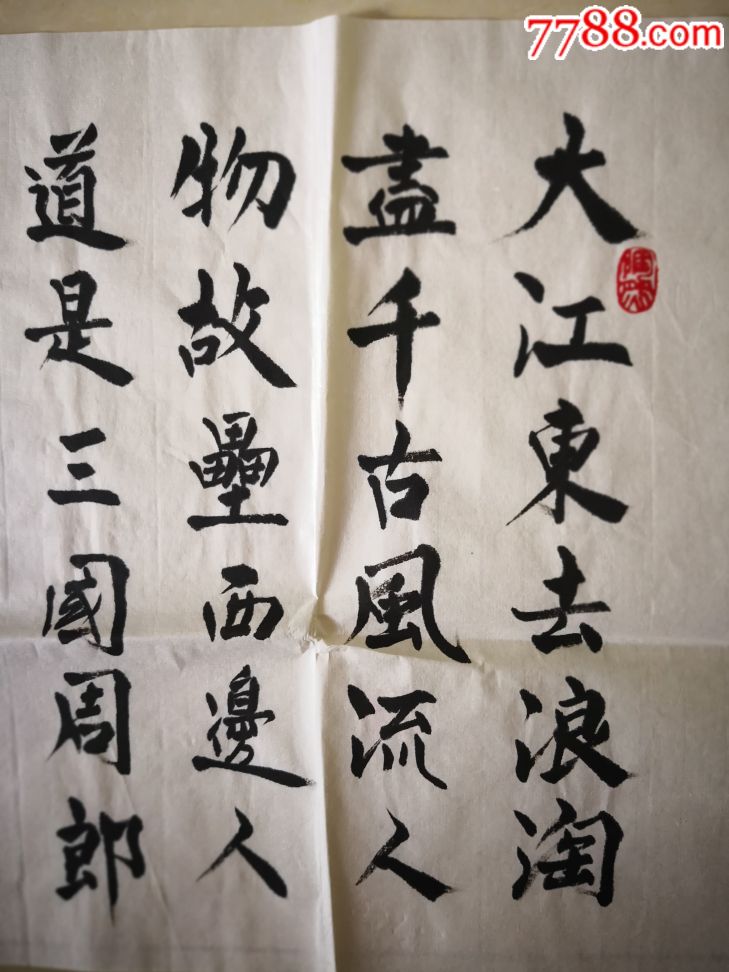 7788.com
大江東去浪淘
盡千古風流人
物故壘西邊人
道是三國周郎